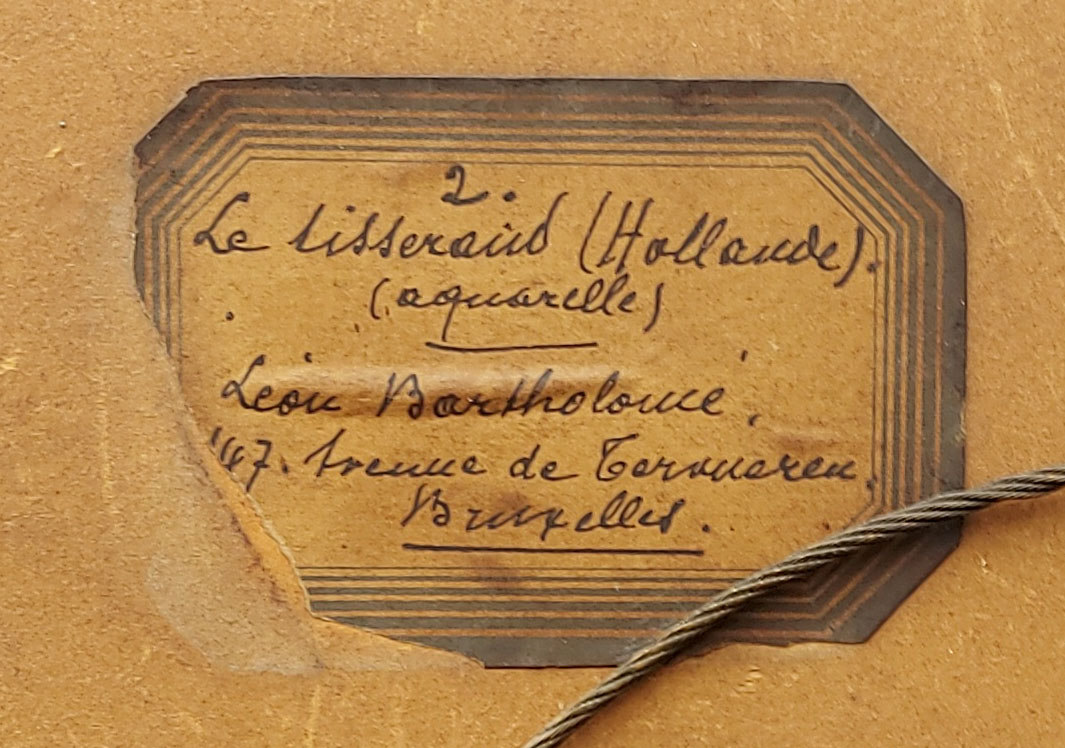 2.
Le tisserand (Hollande).
(aquarelle)
Léon Bartholomé,
47. Avenue de Tervueren.
Bruxelles.